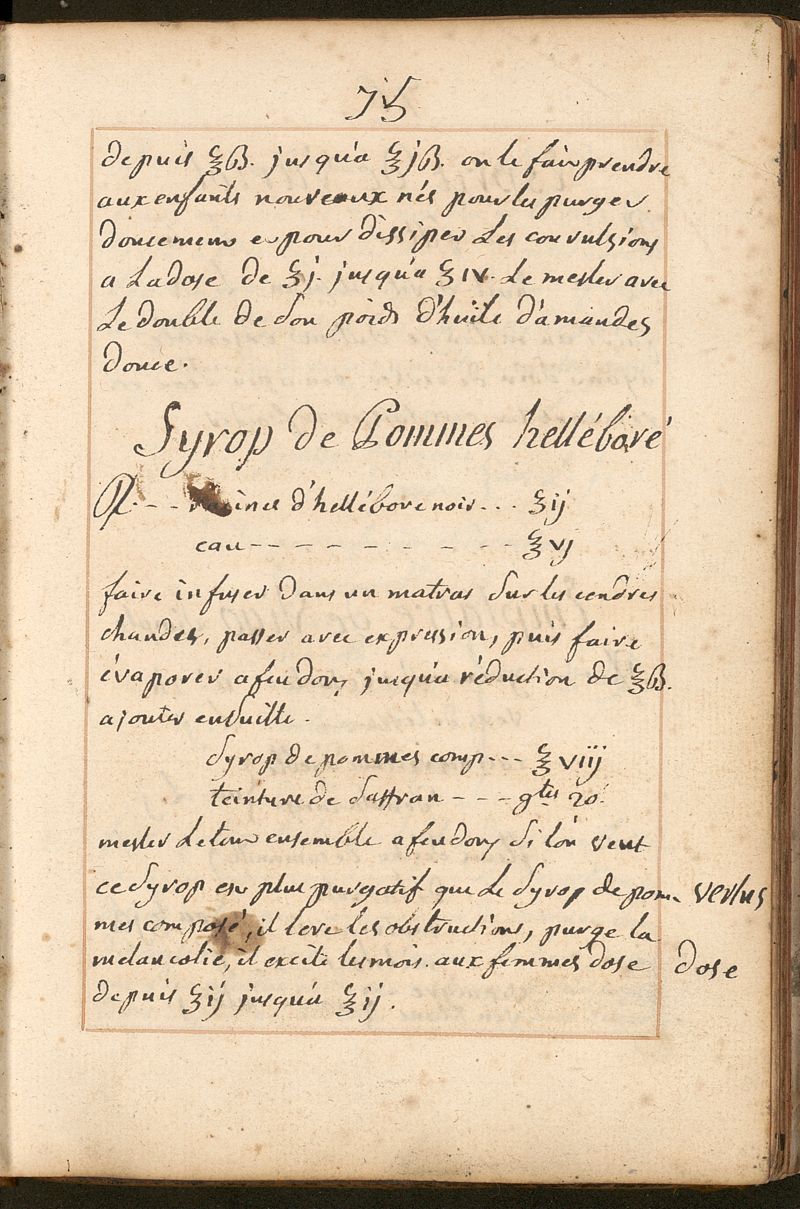 75
depuis ℥ß. jusqu'a ℥jß. on le fair prendre
aux enfants nouveaux nés pour les purger
doucement et pour dissiper Les convulsions
a La dose de ʒj. jusqu'a ʒiv. Le mesler avec
Le double de son poids d'huile d'amandes
douce.
Syrop de Pommes helléboré
℞. - - racines d'hellébore noir... ℥ij
eau - - - - - - - - ℥vj
faire infuser dans un matras sur les cendres
chaudes, passer avec expression, puis faire
évaporer a feu doux jusqu'a réduction de ℥ß.
ajouter ensuitte.
Syrop de pommes comp--- ℥viij
teinture de Saffran - - - gtes 20.
mesler Le tout ensemble a feu doux Si l'on veut
ce Syrop est plus purgatif que Le Syrop de pom- vertus
mes composé, il leve les obstructions, purge la
melancolie, il excite les mois aux femmes dose dose
depuis ʒij jusqu'a ℥ij.